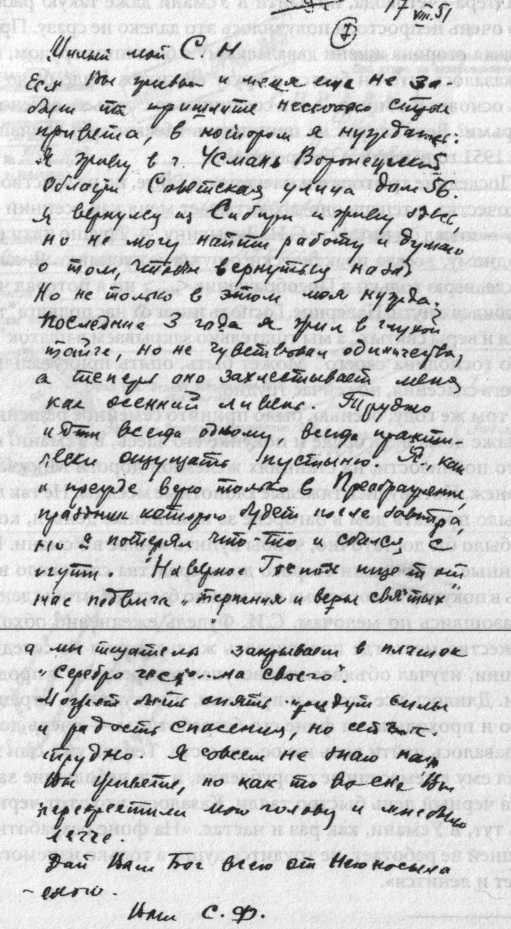 7 VIII.51
7
Милый мой С. Н.
Если Вы живы и меня еще не за-
были то пришлите несколько строк
привета, в котором я нуждаюсь.
Я живу в г. Усмань Воронежской
области Советская улица дом 56.
Я вернулся из Сибири и живу здесь
но не могу найти работу и думаю
о том, чтобы вернуться назад
Но не только в этом моя нужда.
Последние 3 года я жил в глухой
тайге, но не чувствовал одиночества,
а теперь оно захлестывает меня
как осенний ливень. Трудно
идти всегда одному, всегда практи-
чески ощущать пустыню. Я, как
и прежде верю только в Преображение,
праздник которого будет после завтра
но я потерял что-то и сбился с
пути. Наверное Господь ищет от
нас подвига „терпения и веры святых“
а мы тщательно закрываем в платок
„серебро
Может быть опять придут силы
и радость спасения, но сейчас
трудно. Я совсем не знаю как
Вы живете, но как то во сне Вы
перекрестили мою голову и мне было
легче.
Дай Вам Бог всего от Него
Ваш С. Ф.